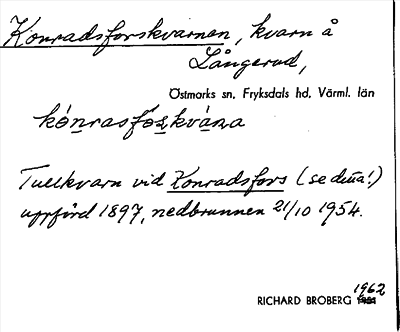 Konradsforskvarnen, kvarn å
Långerud,
Östmarks sn, Fryksdals hd, Värml. län
kónrasfòs̱kvàṉa
Tullkvarn vid Konradsfors (se d:na!)
uppförd 1897, nedbrunnen 21/10 1954.
1962
RICHARD BROBERG